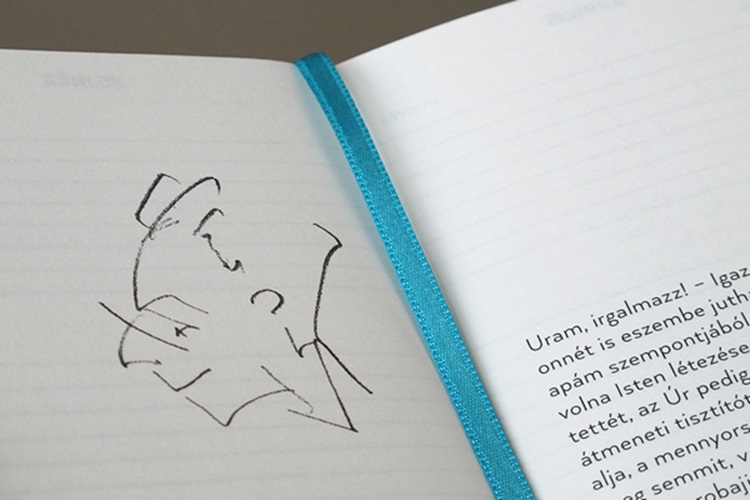 Uram, irgalmazz! – Igaz
onnét is eszembe juth
apám szempontjából
volna Isten létezése
tettét, az Úr pedig
átmeneti tisztítót
alja, a mennyors
semmit, v